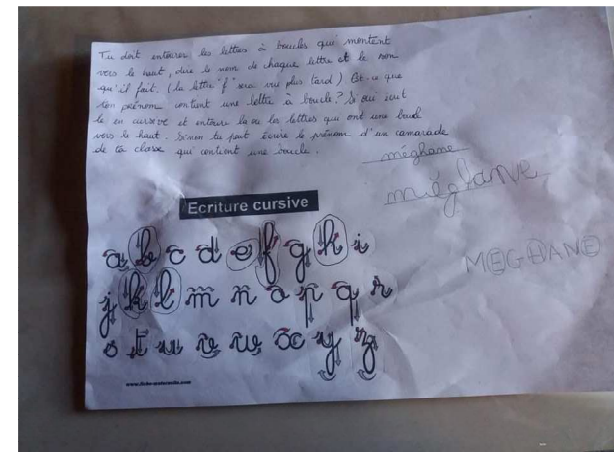 Tu doit entourer les lettres à boucles qui montent
vers le haut, dire le nom de chaque lettre et le son
qu'il fait. (la lettre "f" sera vu plus tard) Est-ce que
ton prénom contient une lettre à boucle? Si oui écrit
le en cursive et entoure la ou les lettres qui ont une boucle
vers le haut. Sinon tu peut écrire le prénom d'un camarade
de ta classe qui contient une boucle.
méghane
méghane
Ecriture cursive
a b c d e f g h i
MEGHANE
j k l m n o p q r
s t u v w x y z
www.fiche-maternelle.com